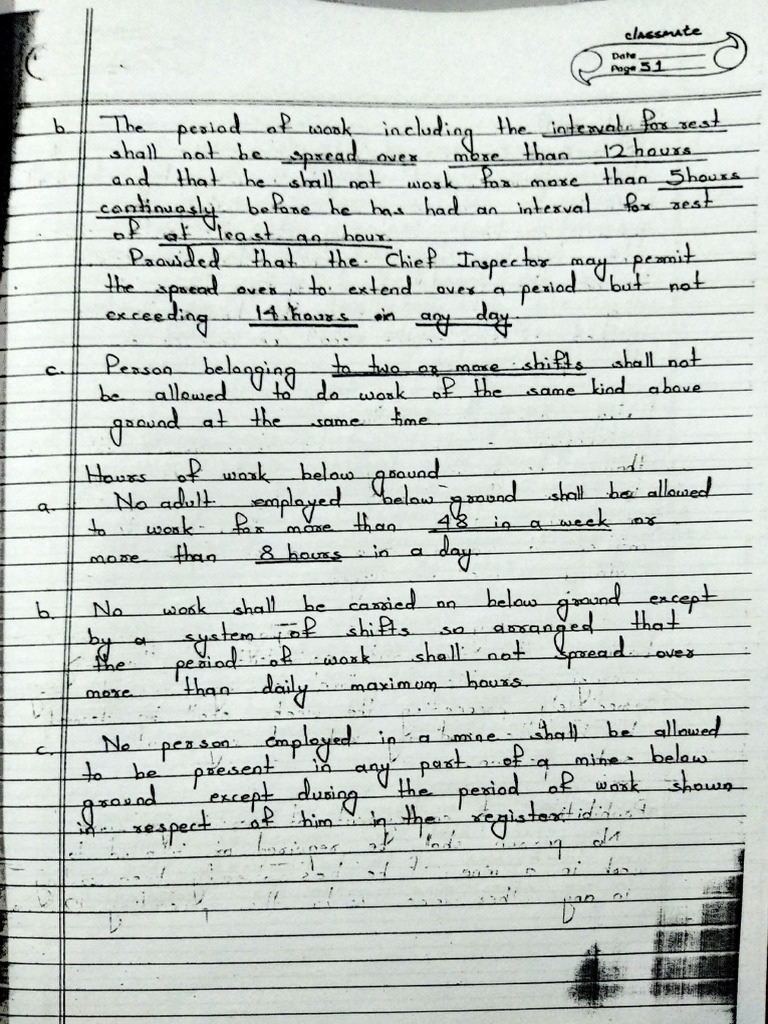 classmate
Date
Page 51
b. The period of work including the interval for rest
shall not be spread over more than 12 hours
and that he shall not work for more than 5 hours
continuosly before he has had an interval for rest
of at least an hour.
Provided that the Chief Inspector may permit
the spread over to extend over a period but not
exceeding 14 hours in any day.
c. Person belonging to two or more shifts shall not
be allowed to do work of the same kind above
ground at the same time.
Hours of work below ground
a. No adult employed below ground shall be allowed
to work for more than 48 in a week or
more than 8 hours in a day.
b. No work shall be carried on below ground except
by a system of shifts so arranged that
the period of work shall not spread over
more than daily maximum hours.
c. No person employed in a mine shall be allowed
to be present in any part of a mine below
ground except during the period of work shown
in respect of him in the register.